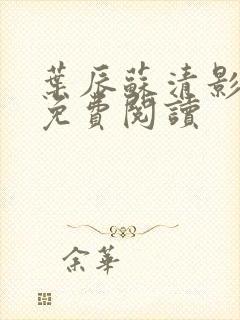 葉辰蘇清影
免費閱讀
余華